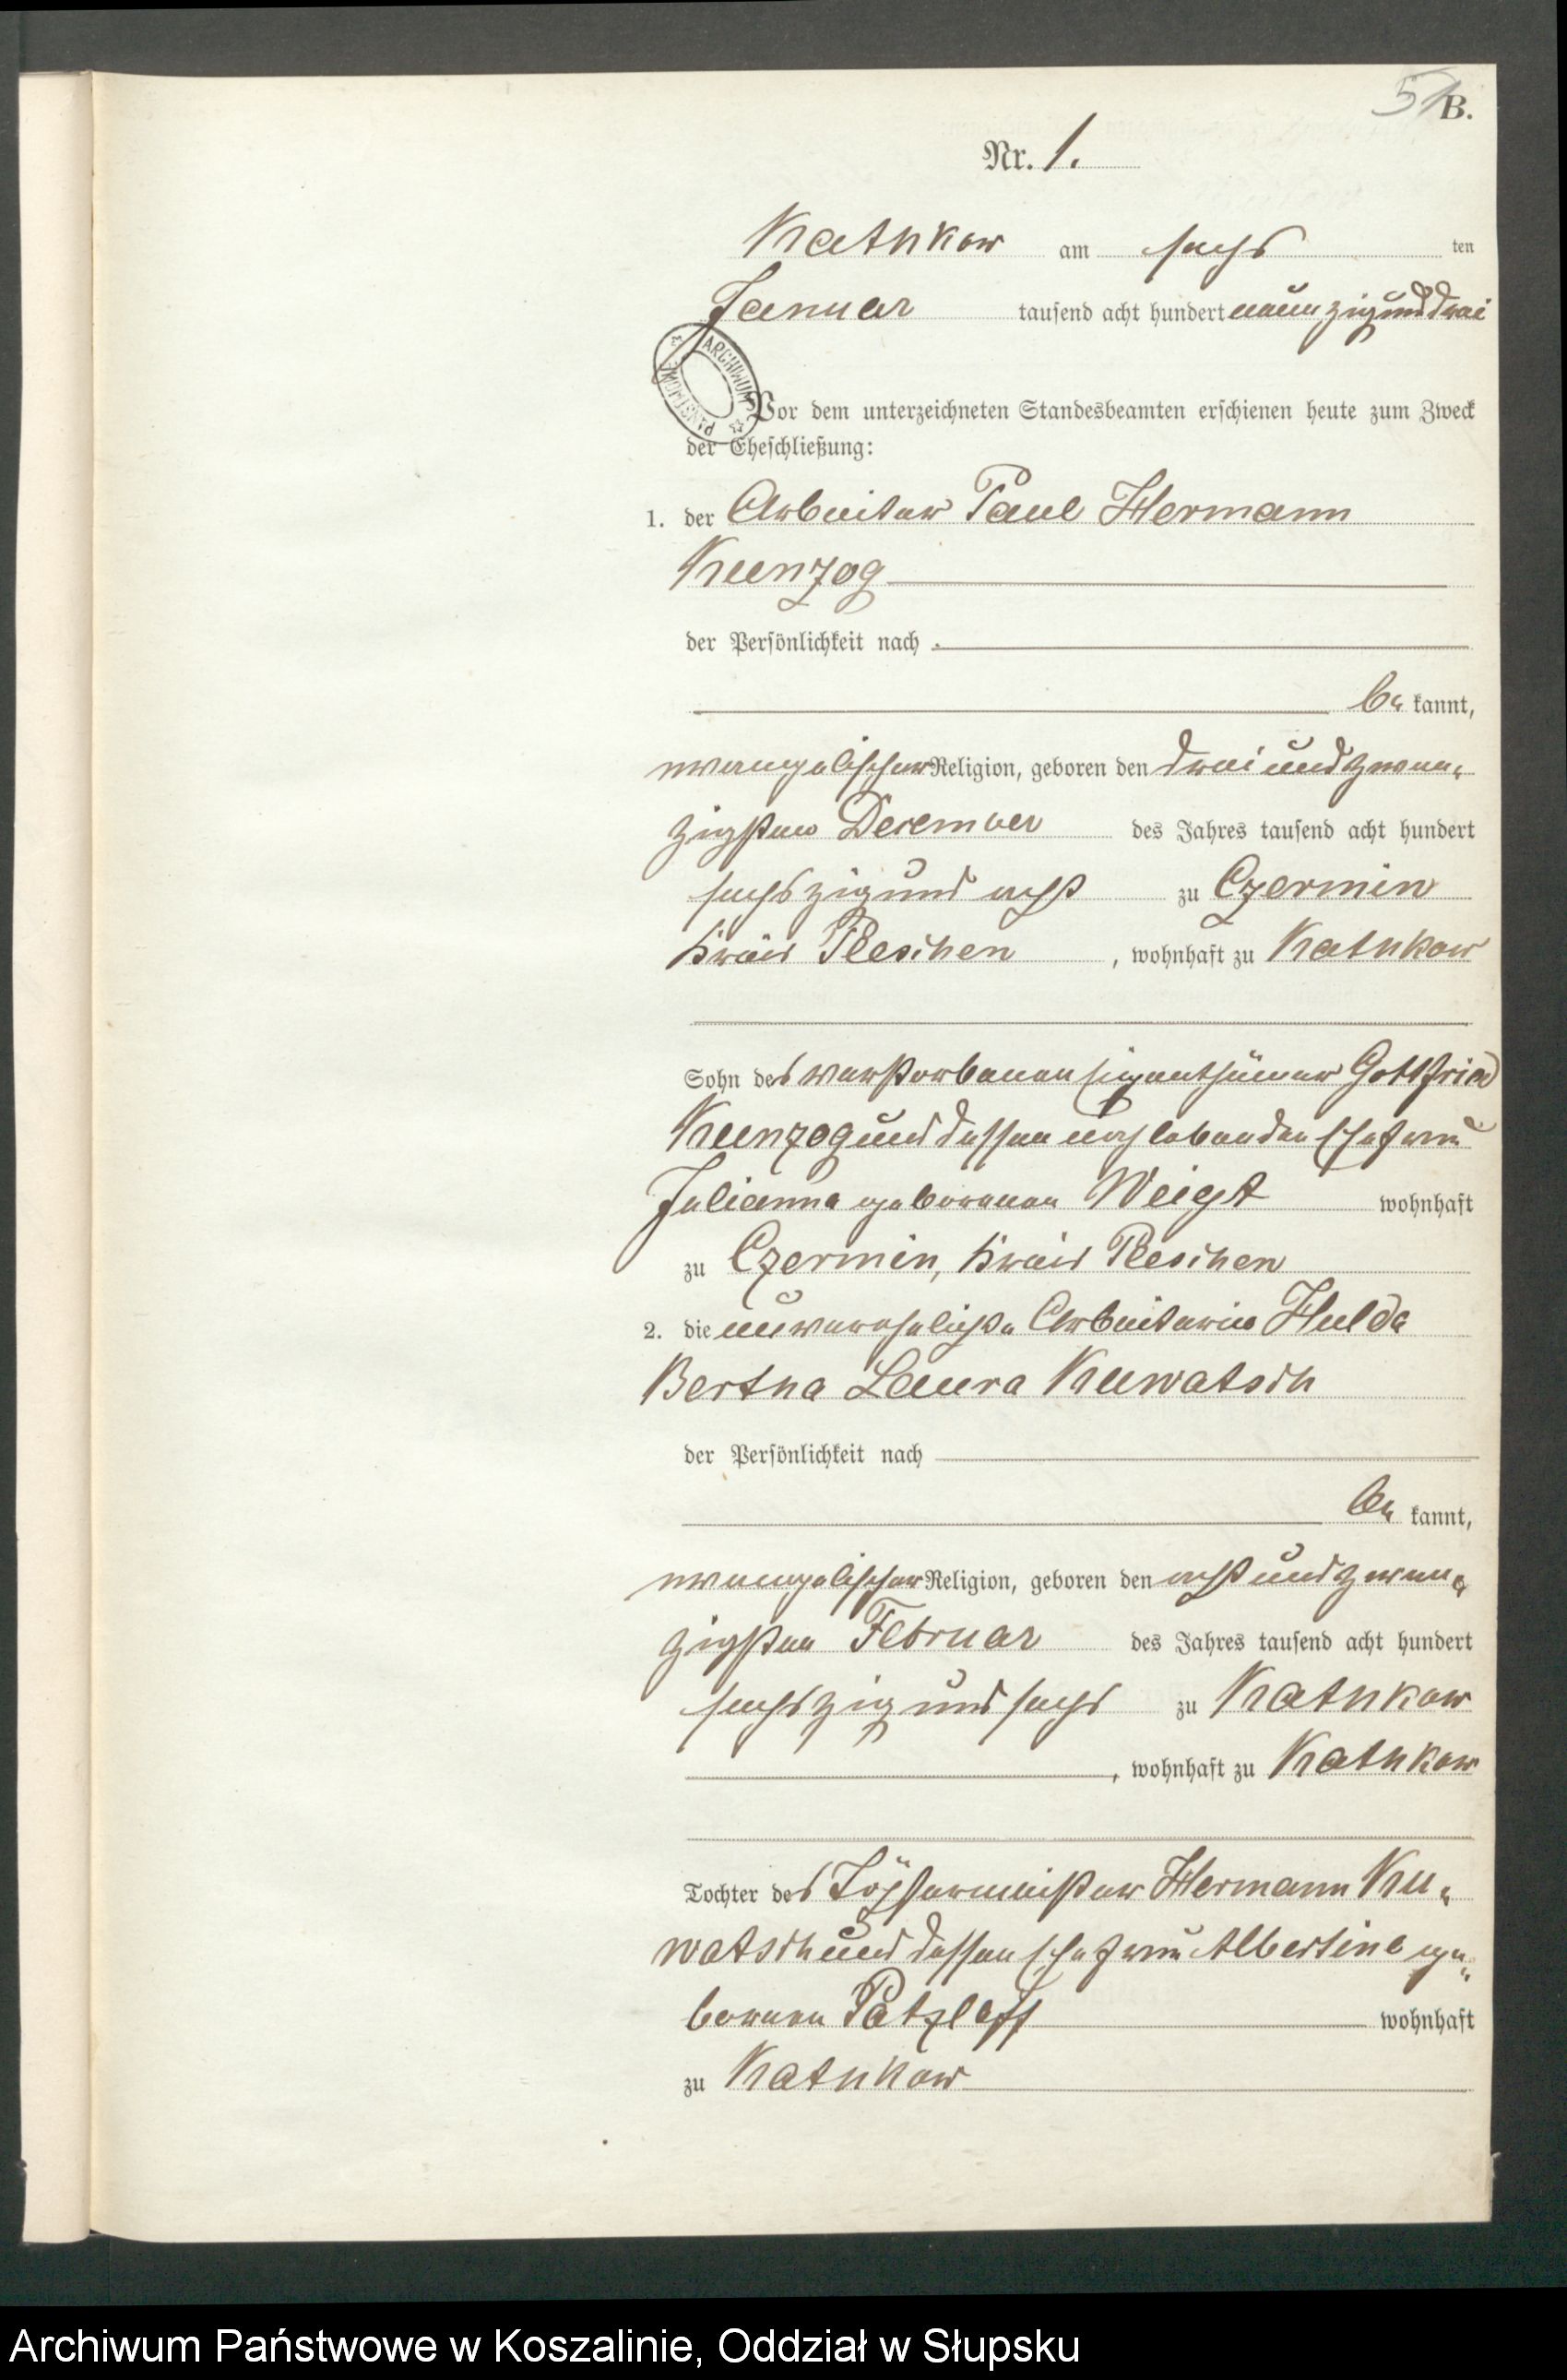 51
B.
Nr. 1.
Kathkow am sechs ten
Januar tausend acht hundert neunzig und drei
ARCHIWUM PAŃSTWOWE
Vor dem unterzeichneten Standesbeamten erschienen heute zum Zweck
der Eheschließung:
1. der Arbeiter Paul Hermann
Kunzog
der Persönlichkeit nach
be kannt,
evangelischer Religion, geboren den drei und zwan-
zigsten December des Jahres tausend acht hundert
sechszig und acht zu Czermin
Kreis Pleschen, wohnhaft zu Kathkow
Sohn des verstorbenen Eigenthümer Gottfried
Kunzog und dessen noch lebenden Ehefrau
Julianna geborenen Weigt wohnhaft
zu Czermin, Kreis Pleschen
2. die unverehelichte Arbeiterin Hulda
Bertha Laura Kuwatsch
der Persönlichkeit nach
be kannt,
evangelischer Religion, geboren den acht und zwan-
zigsten Februar des Jahres tausend acht hundert
sechszig und sechs zu Kathkow
, wohnhaft zu Kathkow
Tochter des Töpfermeister Hermann Ku-
watsch und dessen Ehefrau Albertine ge-
bornen Patzlaff wohnhaft
zu Kathkow
Archiwum Państwowe w Koszalinie, Oddział w Słupsku